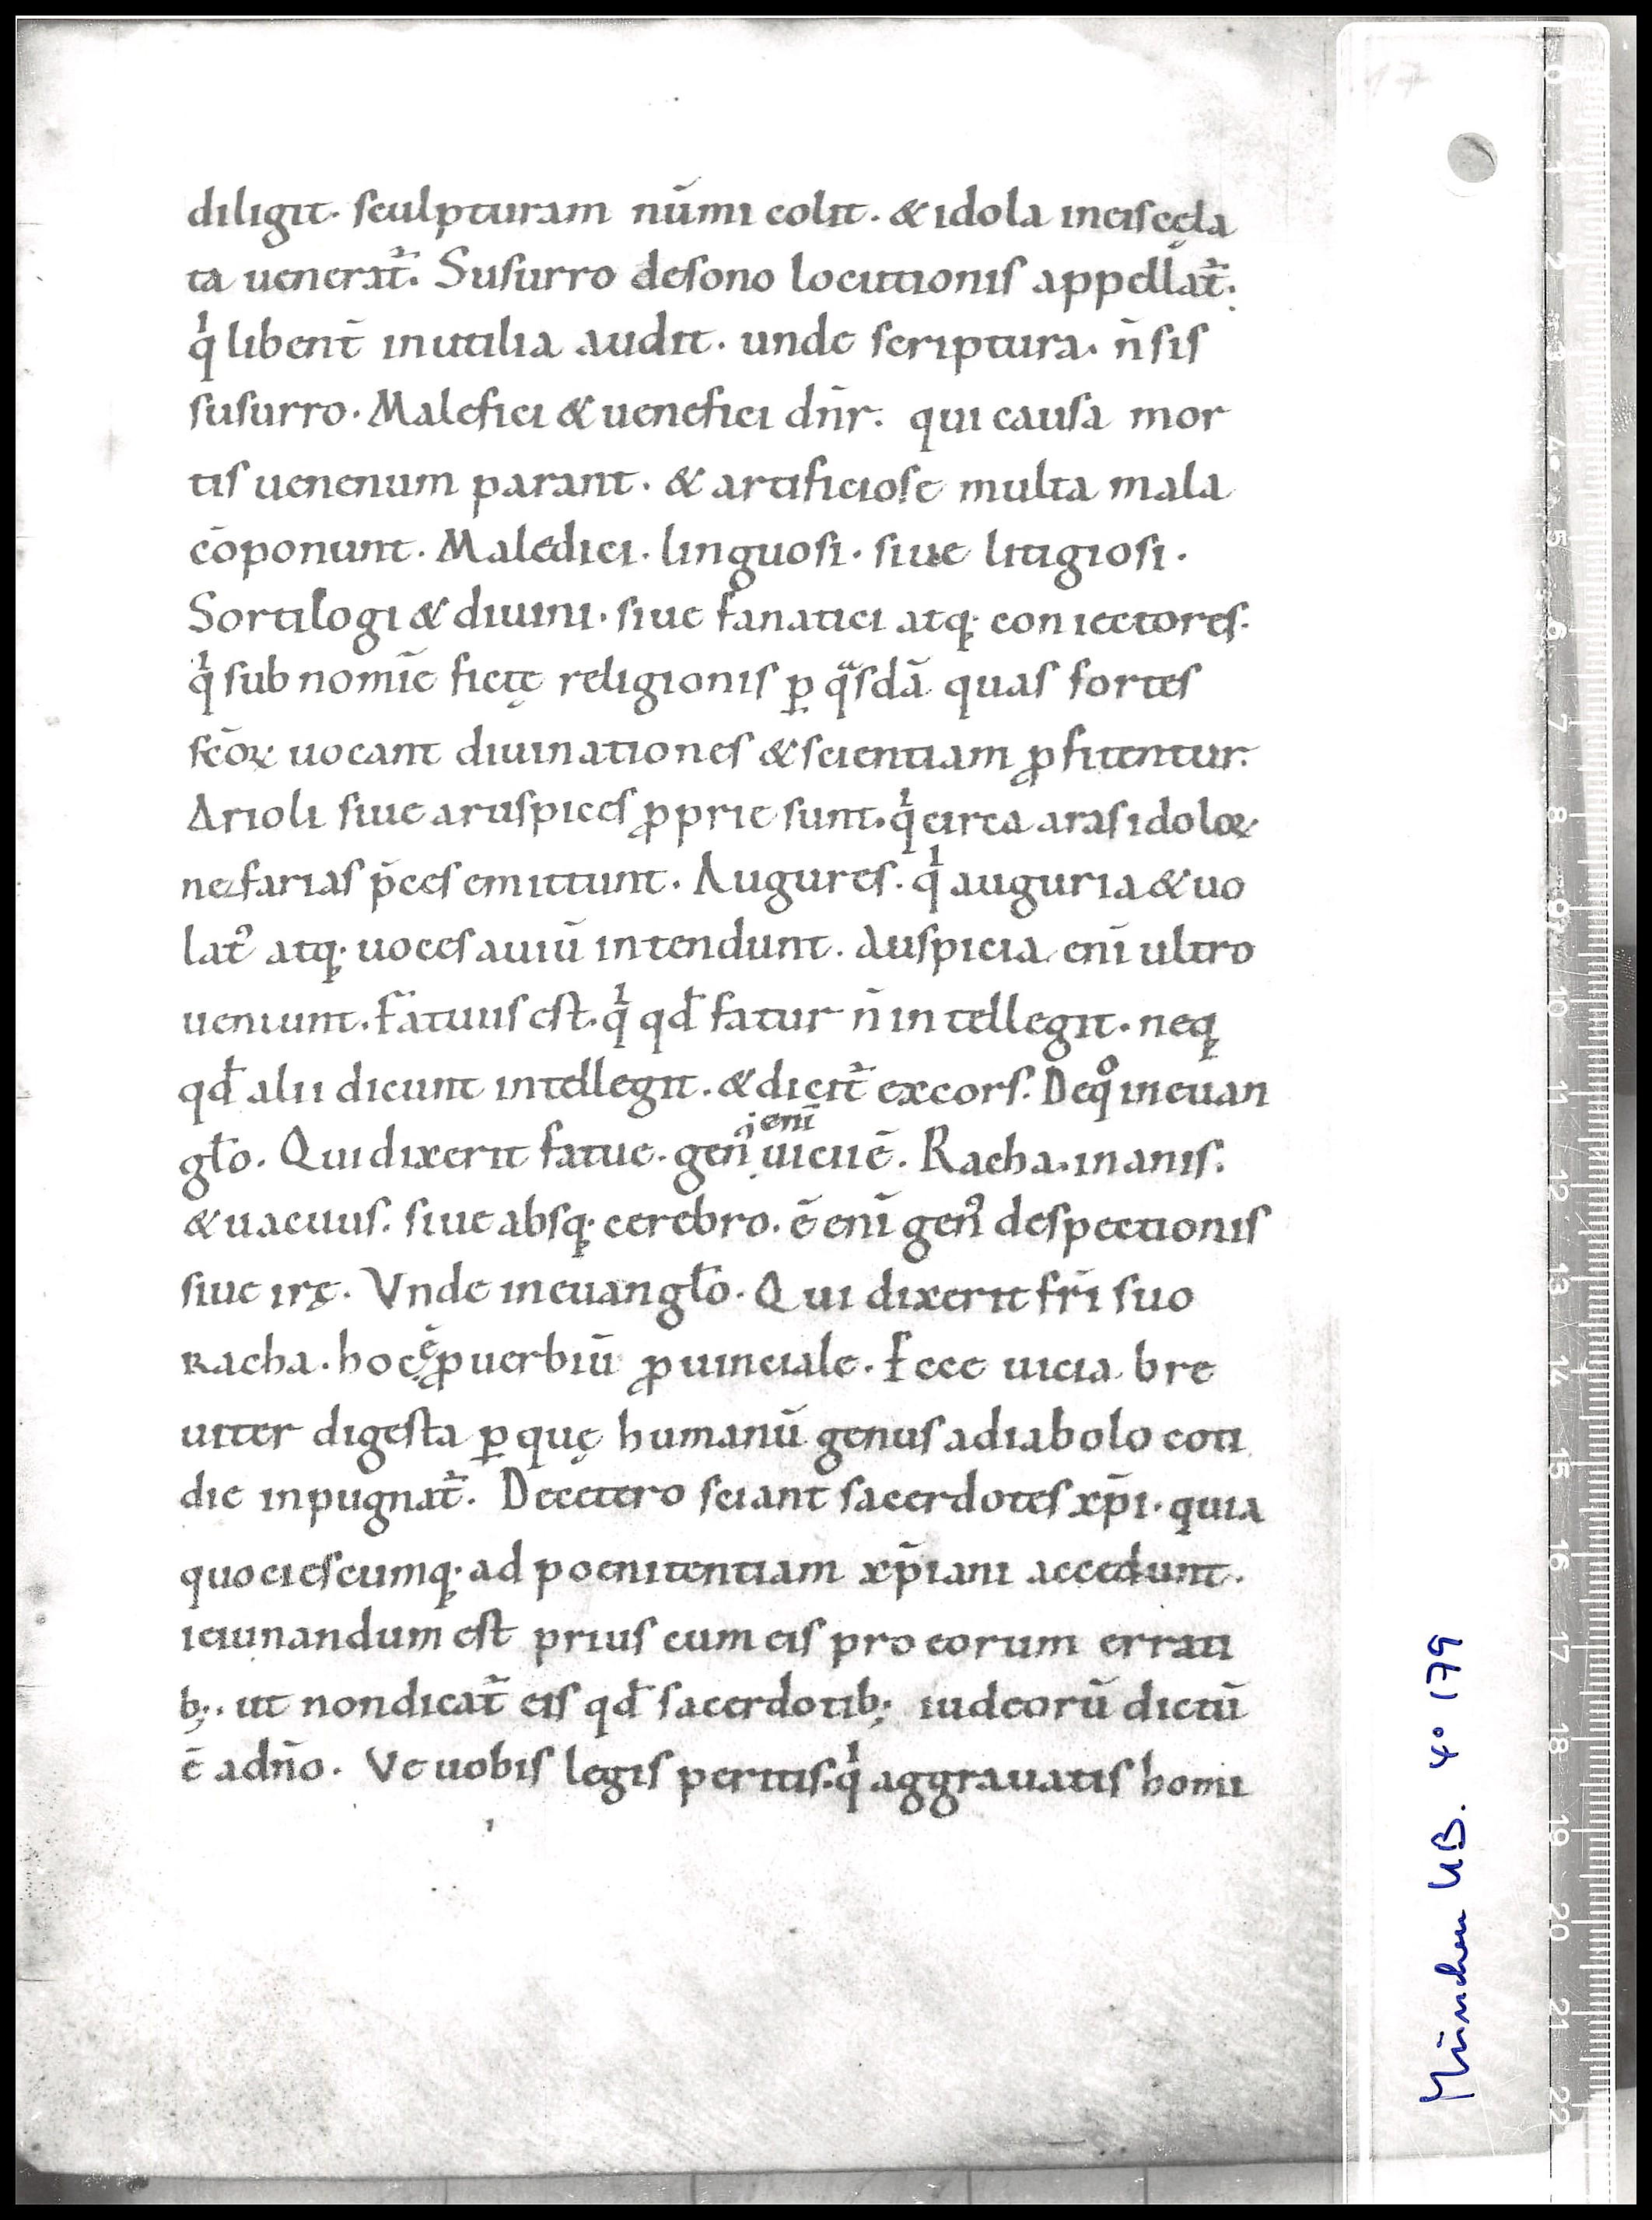 diligit. sculpturam nūmi colit. & idola ineis cęla
ta uenerat̃. Susurro desono locutionis appellat̃.
qͥ libent̄ inutilia audit. unde scriptura. n̄ sis
susurro. Malefici & uenefici dn̄r. qui causa mor
tis uenenum parant. & artificiose multa mala
cōponunt. Maledici. linguosi. siue litigiosi.
Sortilogi & diuini. siue fanatici atq; coniectores.
qͥ sub nomīe fictę religionis ꝑ qͣsdā quas sortes
sc̄oꝝ uocant diuinationes & scientiam ꝓfitentur.
Arioli siue aruspices ꝓprie sunt. qͥ circa aras idoloꝝ
nefarias p̄ces emittunt. Augures. qͥ auguria & uo
lat᾿ atq; uoces auiū intendunt. Auspicia enī ultro
ueniunt. Fatuus est. qͥ qd̄ fatur n̄ intellegit. neq;
qd̄ alii dicunt intellegit. & dicit̃ excors. Deqͦ in euan
enī
gl̄o. Qui dixerit fatue. gen᾿ uicii ē. Racha. inanis.
& uacuus. siue absq; cerebro. ē enī gen᾿ despectionis
siue irę. Vnde in euangl̄o. Qui dixerit fr̄i suo
Racha. hoc ē ꝓuerbiū ꝓuinciale. Ecce uicia bre
uiter digesta ꝑ quę humanū genus adiabolo coti
die inpugnat̃. Decetero sciant sacerdotes xp̄i. quia
quociescumq; ad poenitentiam xp̄iani accedunt.
ieiunandum est prius cum eis pro eorum errati
b;. ut non dicat̃ eis qd̄ sacerdotib; iudeorū dictū
ē adn̄o. Ve uobis legis peritis. qͥ aggrauatis homi
17
München UB. 4° 179
0
1
2
3
4
5
6
7
8
9
10
11
12
13
14
15
16
17
18
19
20
21
22